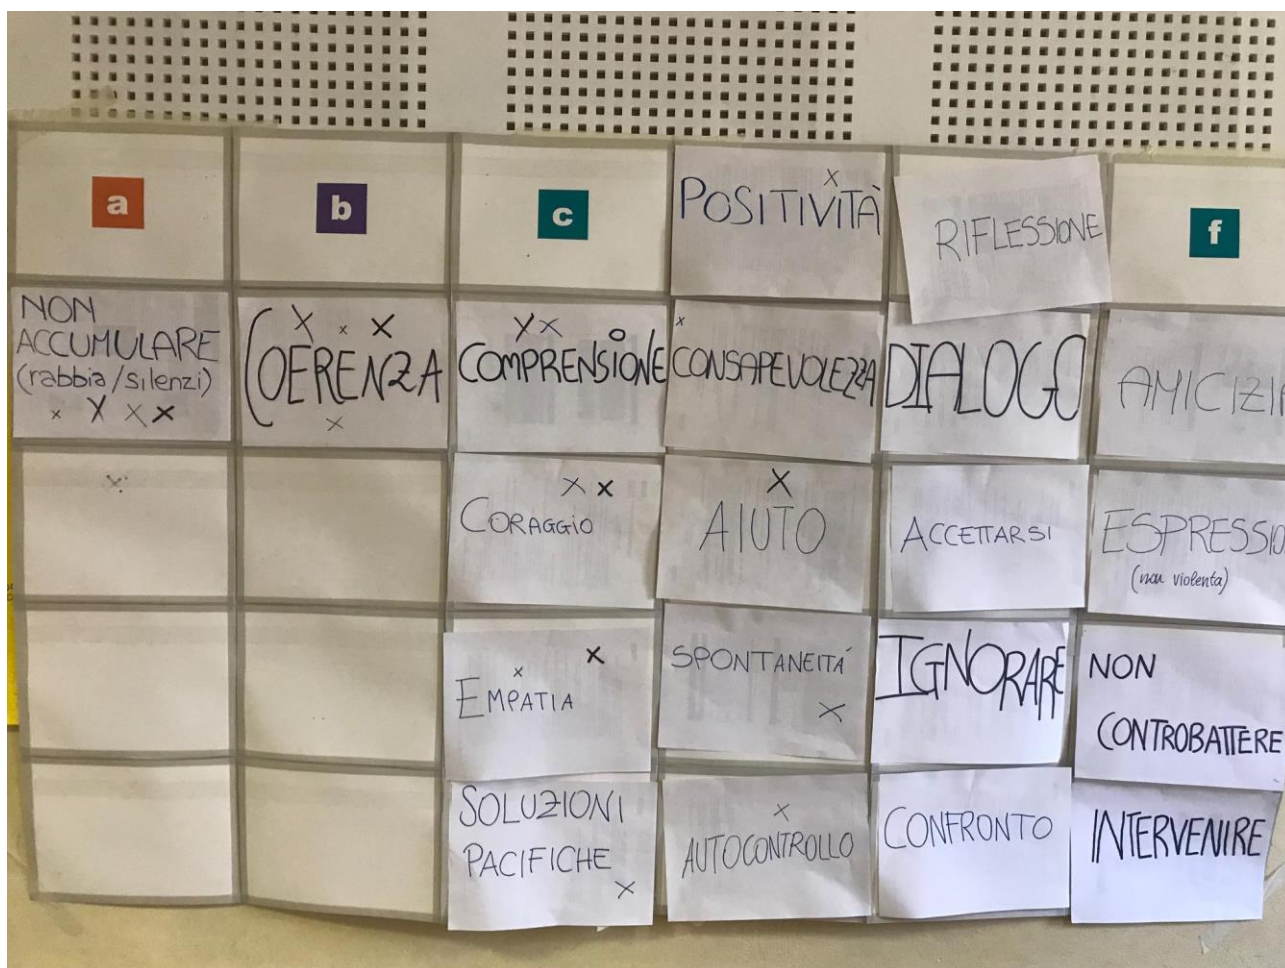 a
b
c
POSITIVITÀ
RIFLESSIONE
f
NON
ACCUMULARE
(rabbia/silenzi)
COERENZA
COMPRENSIONE
CONSAPEVOLEZZA
DIALOGO
AMICIZI
CORAGGIO
AIUTO
ACCETTARSI
ESPRESSIO
(non violenta)
EMPATIA
SPONTANEITÁ
IGNORARE
NON
CONTROBATTERE
SOLUZIONI
PACIFICHE
AUTOCONTROLLO
CONFRONTO
INTERVENIRE